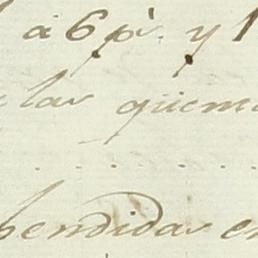 á 6 p.s y 1
las quem
bendidas en